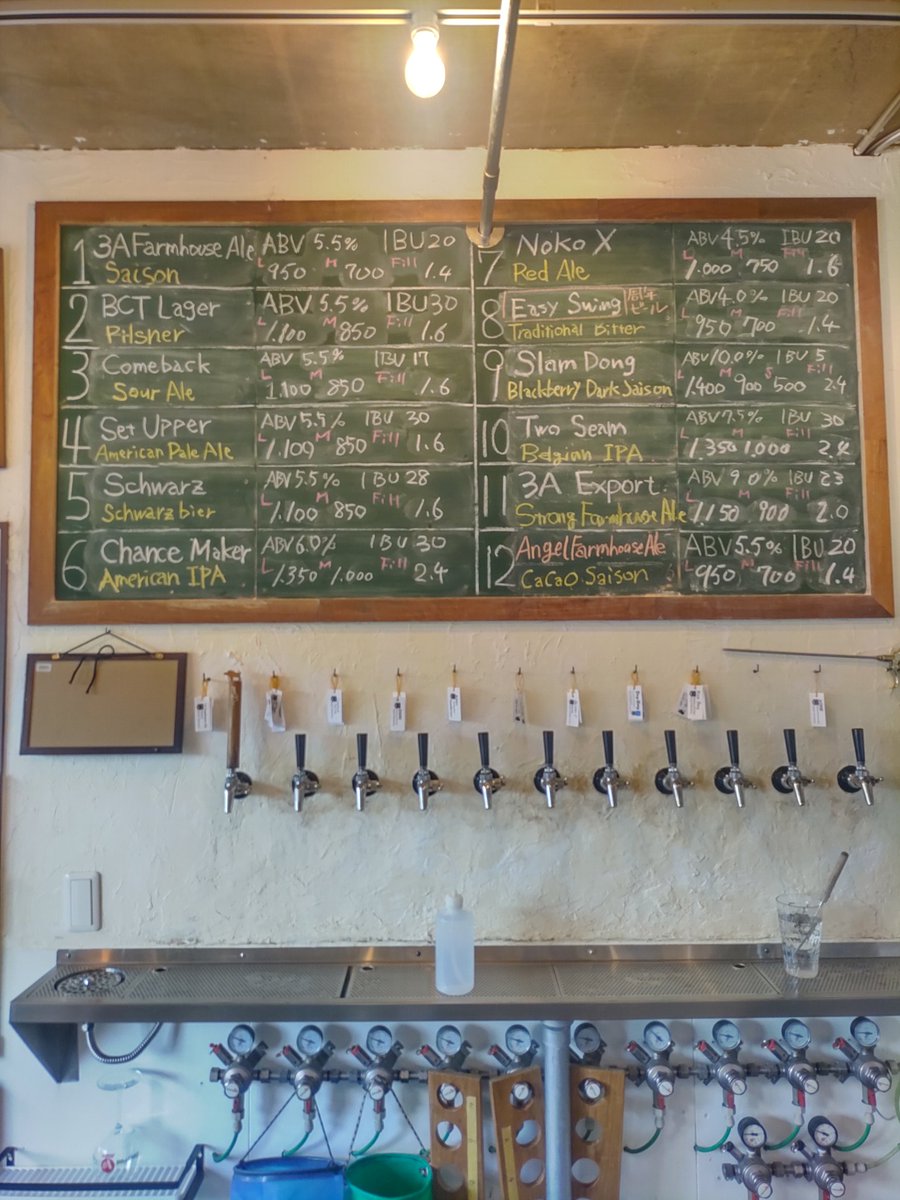 1 3A Farmhouse Ale ABV 5.5% IBU 20
Saison L 950 M 700 Fill 1.4
2 BCT Lager ABV 5.5% IBU 30
Pilsner L 1.100 M 850 Fill 1.6
3 Comeback ABV 5.5% IBU 17
Sour Ale L 1.100 M 850 Fill 1.6
4 Set Upper ABV 5.5% IBU 30
American Pale Ale L 1.100 M 850 Fill 1.6
5 Schwarz ABV 5.5% IBU 28
Schwarz bier L 1.100 M 850 Fill 1.6
6 Chance Maker ABV 6.0% IBU 30
American IPA L 1.350 M 1.000 Fill 2.4
7 Noko X ABV 4.5% IBU 20
Red Ale L 1.000 M 750 Fill 1.6
8 Easy Swing ABV 4.0% IBU 20
Traditional Bitter L 950 M 700 Fill 1.4
9 Slam Dong ABV 10.0% IBU 5
Blackberry Dark Saison L 1.400 M 900 S 500 2.4
10 Two Seam ABV 7.5% IBU 30
Belgian IPA L 1.350 M 1.000 Fill 2.4
11 3A Export ABV 9.0% IBU 23
Strong Farmhouse Ale L 1.150 M 900 Fill 2.0
12 Angel Farmhouse Ale ABV 5.5% IBU 20
CaCaO Saison L 950 M 700 Fill 1.4